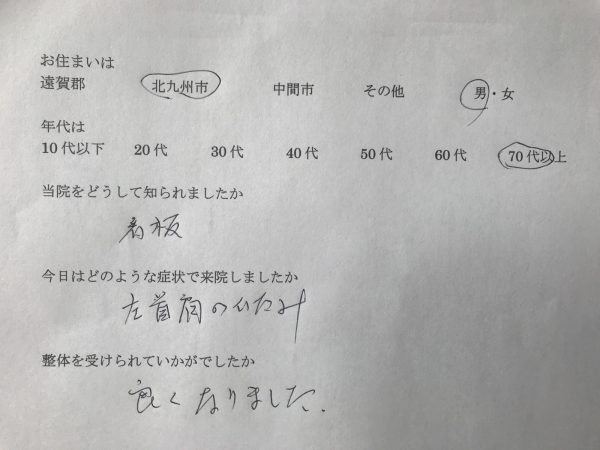 お住まいは
遠賀郡 北九州市 中間市 その他 男・女
年代は
10代以下 20代 30代 40代 50代 60代 70代以上
当院をどうして知られましたか
看板
今日はどのような症状で来院しましたか
左首肩のいたみ
整体を受けられていかがでしたか
良くなりました.